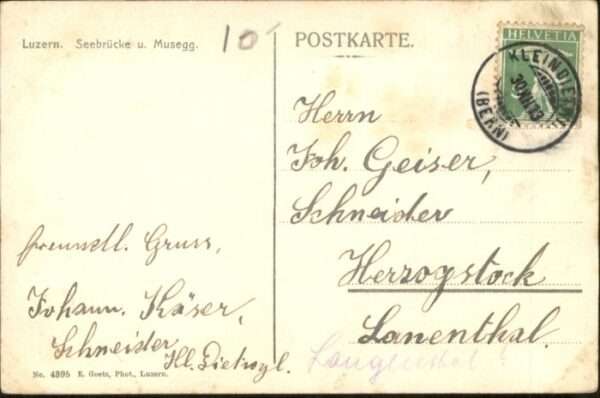 Luzern. Seebrücke u. Musegg.
10
POSTKARTE.
HELVETIA
KLEINDIET
30.VII.13
(BERN)
Herrn
Joh. Geiser,
Schneider
Herzogstock
Lanenthal.
Langenthal
freundl. Gruss,
Johann. Käser,
Schneider
Kl. Dietwyl.
No. 4395 E. Goetz, Phot., Luzern.